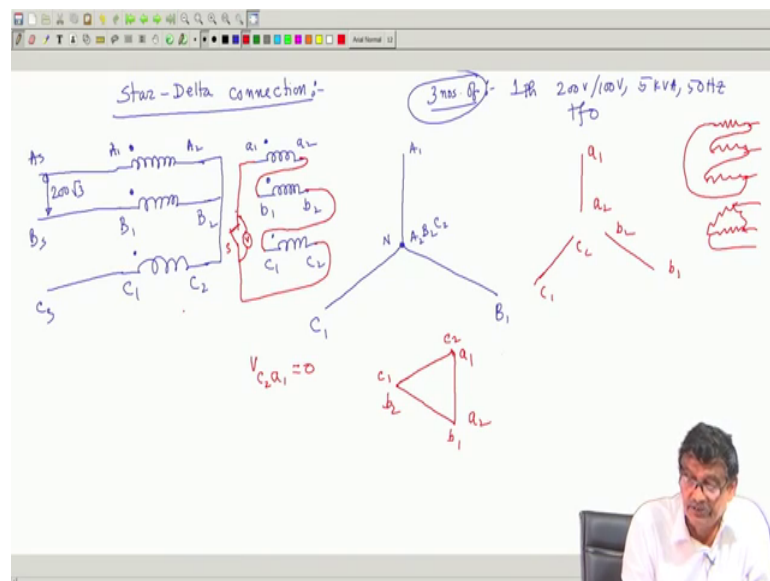 Arial Normal 12
Star-Delta connection:-
3 nos. of:- 1ph 200V/100V, 5 kVA, 50Hz
tfo
A1
a1
As A1 A2 a1 a2
200√3
a2
Bs B1 B2 b1 b2
S V
N A2B2C2
b2
c2
b1
c1
Cs C1 C2 c1 c2
C1 B1
Vc2a1 = 0
c2
a1
c1
b2
a2
b1